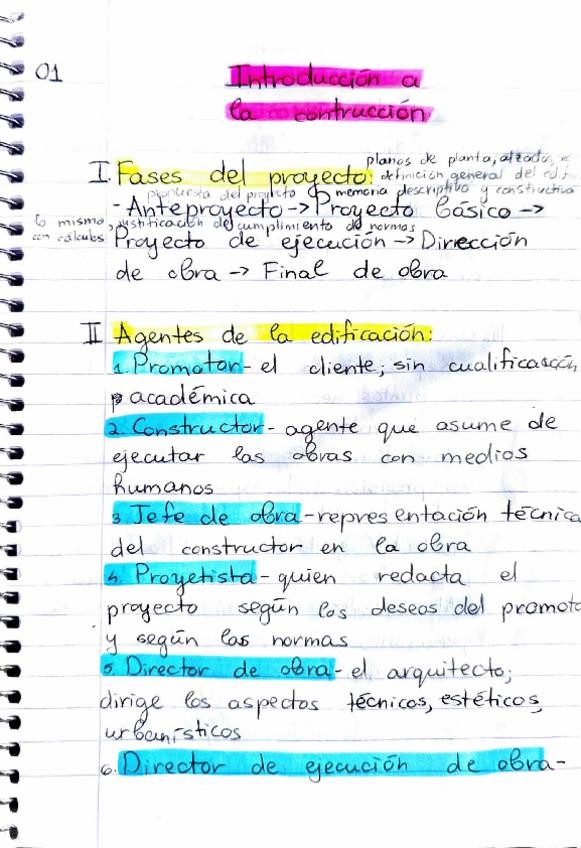 01
Introducción a
la contrucción
planos de planta, alzados,
I. Fases del proyecto: definición general del edif
propuesta del proyecto memoria descriptiva y constructiva
- Anteproyecto → Proyecto básico →
lo mismo, justificación de cumplimiento de normas
con cálculos Proyecto de ejecución → Dirección
de obra → Final de obra
II Agentes de la edificación:
1. Promotor - el cliente; sin cualificación
académica
2. Constructor - agente que asume de
ejecutar las obras con medios
humanos
3. Jefe de obra - representación técnica
del constructor en la obra
4. Proyetista - quien redacta el
proyecto según los deseos del promoto
y según las normas
5. Director de obra - el arquitecto;
dirige los aspectos técnicos, estéticos,
urbanísticos
6. Director de ejecución de obra -